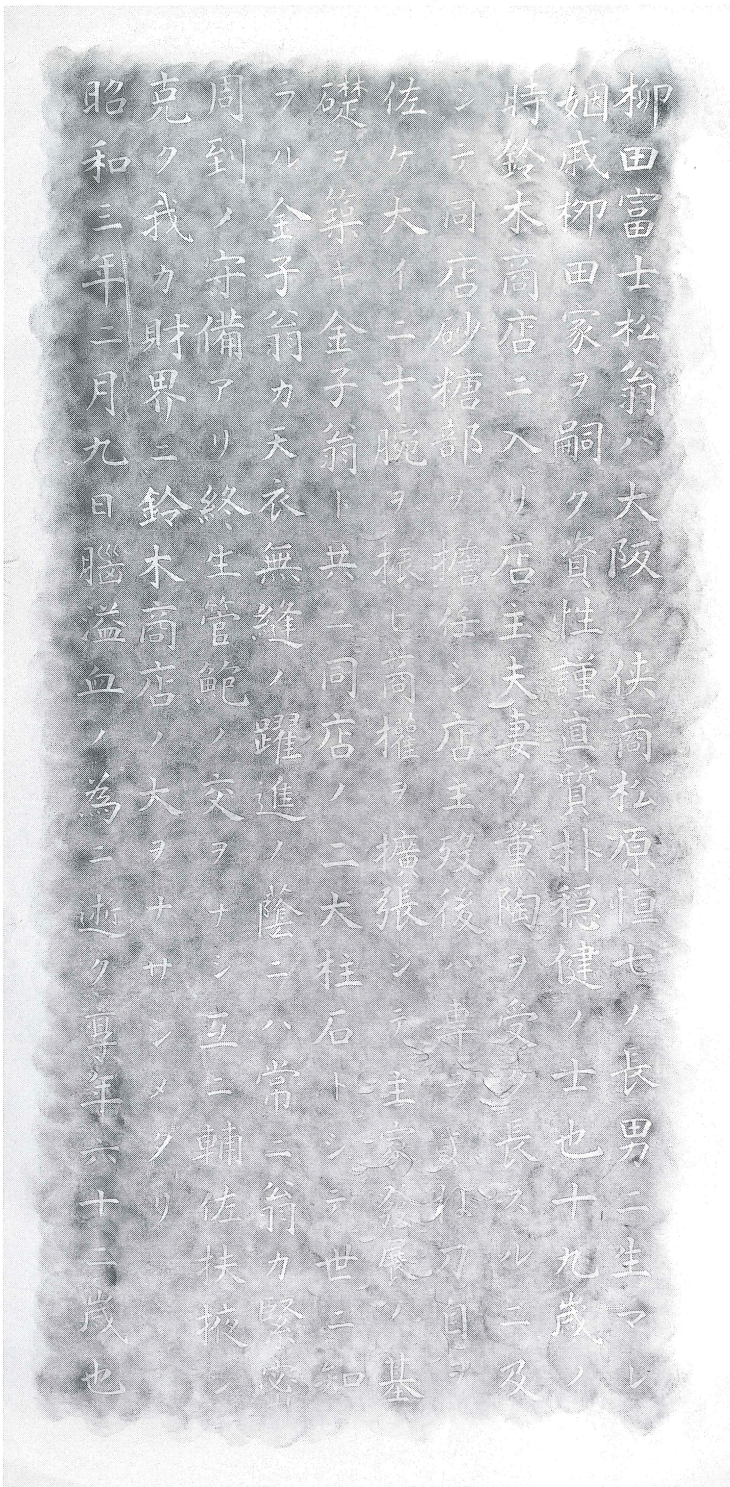 柳田富士松翁ハ大阪ノ侠商松原恒七ノ長男ニ生マレ
姻戚柳田家ヲ嗣ク資性謹直質朴穏健ノ士也十九歳ノ
時鈴木商店ニ入リ店主夫妻ノ薫陶ヲ受ク長スルニ及
シテ同店砂糖部ヲ擔任シ店主歿後ハ専ラ刀自ヲ
佐ケ大イニ才腕ヲ振ヒ商權ヲ擴張シテ主家発展ノ基
礎ヲ築キ金子翁ト共ニ同店ノ二大柱石トシテ世ニ知
ラル金子翁カ天衣無縫ノ躍進ノ蔭ニハ常ニ翁カ堅忠
周到ノ守備アリ終生管鮑ノ交ヲナシ互ニ輔佐扶掖シ
克ク我カ財界ニ鈴木商店ノ大ヲナサシメタリ
昭和三年二月九日腦溢血ノ為ニ逝ク享年六十二歳也